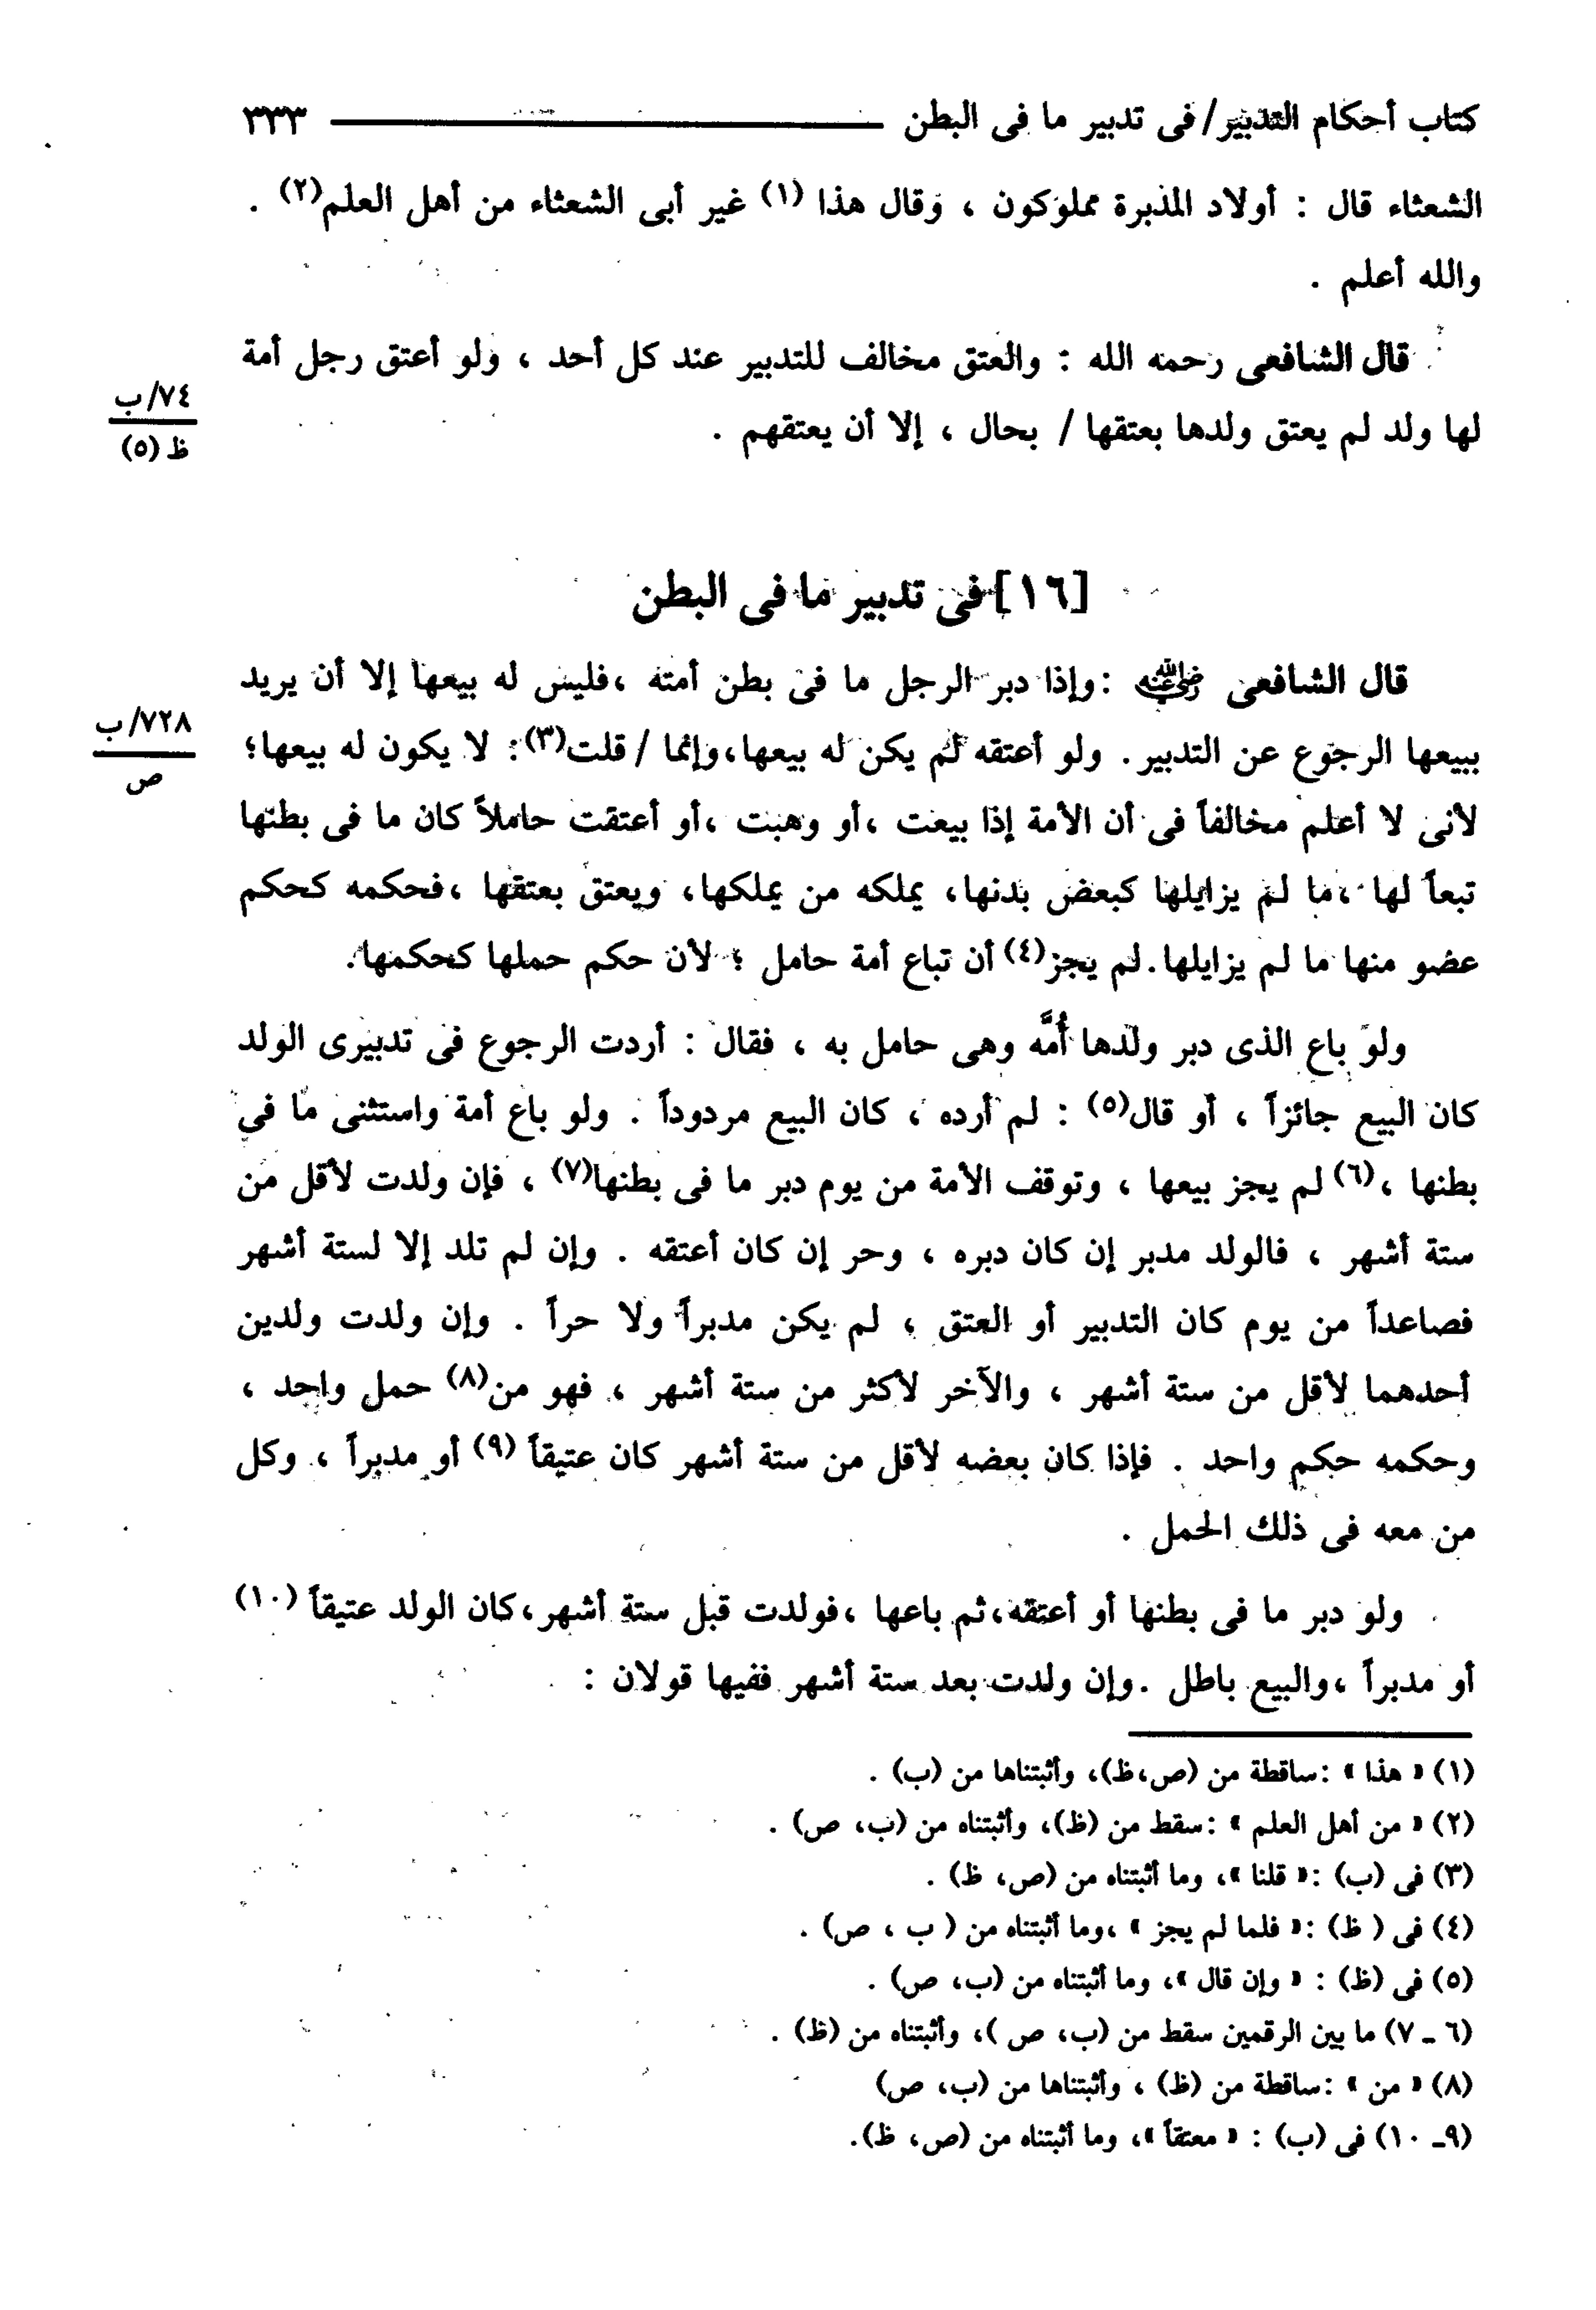 كتاب أحكام التدبير/ فى تدبير ما فى البطن ٣٣٣
الشعثاء قال : أولاد المدبرة مملوكون ، وقال هذا (١) غير أبى الشعثاء من أهل العلم(٢) .
والله أعلم .
قال الشافعى رحمه الله : والعتق مخالف للتدبير عند كل أحد ، ولو أعتق رجل أمة
لها ولد لم يعتق ولدها بعتقها / بحال ، إلا أن يعتقهم .
٧٤/ب
ظ (٥)
[١٦] فى تدبير ما فى البطن
قال الشافعى رضي الله عنه :وإذا دبر الرجل ما فى بطن أمته ،فليس له بيعها إلا أن يريد
ببيعها الرجوع عن التدبير. ولو أعتقه لم يكن له بيعها،وإنما / قلت(٣): لا يكون له بيعها؛
٧٢٨/ب
ص
لأنى لا أعلم مخالفاً فى أن الأمة إذا بيعت ،أو وهبت ،أو أعتقت حاملاً كان ما فى بطنها
تبعاً لها ،ما لم يزايلها كبعض بدنها، يملكه من يملكها، ويعتق بعتقها ،فحكمه كحكم
عضو منها ما لم يزايلها.لم يجز(٤) أن تباع أمة حامل ؛ لأن حكم حملها كحكمها.
ولو باع الذى دبر ولدها أُمَّه وهى حامل به ، فقال : أردت الرجوع فى تدبيرى الولد
كان البيع جائزاً ، أو قال(٥) : لم أرده ، كان البيع مردوداً . ولو باع أمة واستثنى ما فى
بطنها ،(٦) لم يجز بيعها ، وتوقف الأمة من يوم دبر ما فى بطنها(٧) ، فإن ولدت لأقل من
ستة أشهر ، فالولد مدبر إن كان دبره ، وحر إن كان أعتقه . وإن لم تلد إلا لستة أشهر
فصاعداً من يوم كان التدبير أو العتق ، لم يكن مدبراً ولا حراً . وإن ولدت ولدين
أحدهما لأقل من ستة أشهر ، والآخر لأكثر من ستة أشهر ، فهو من(٨) حمل واحد ،
وحكمه حكم واحد . فإذا كان بعضه لأقل من ستة أشهر كان عتيقاً (٩) أو مدبراً ، وكل
من معه فى ذلك الحمل .
ولو دبر ما فى بطنها أو أعتقه،ثم باعها ،فولدت قبل ستة أشهر،كان الولد عتيقاً (١٠)
أو مدبراً ،والبيع باطل .وإن ولدت بعد ستة أشهر ففيها قولان :
(١) « هذا » :ساقطة من (ص،ظ)، وأثبتناها من (ب) .
(٢) « من أهل العلم » :سقط من (ظ)، وأثبتناه من (ب، ص) .
(٣) فى (ب) :« قلنا »، وما أثبتناه من (ص، ظ) .
(٤) فى ( ظ) :« فلما لم يجز » ،وما أثبتناه من ( ب ، ص) .
(٥) فى (ظ) : « وإن قال »، وما أثبتناه من (ب، ص) .
(٦ ـ ٧) ما بين الرقمين سقط من (ب، ص )، وأثبتناه من (ظ) .
(٨) « من » :ساقطة من (ظ) ، وأثبتناها من (ب، ص)
(٩ـ ١٠) فى (ب) : « معتقاً »، وما أثبتناه من (ص، ظ).